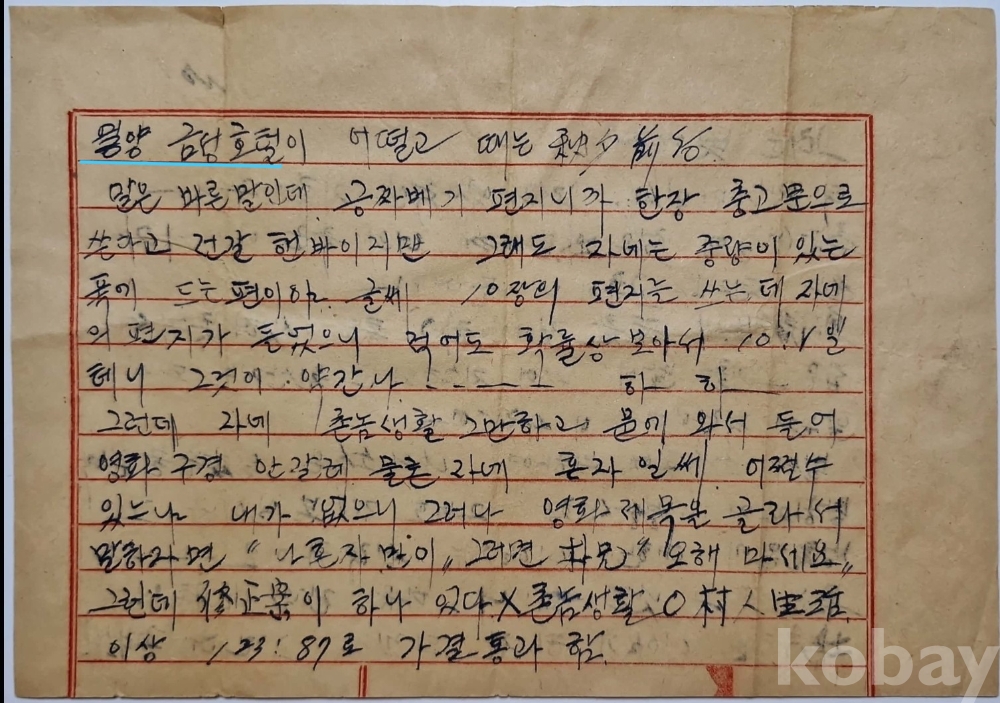 금성호텔이 어떨고 때는 秋夕 前后
말은 바른말인데 공짜베기 편지니까 한장 중고문으로
쓰라고 전갈 헌바이지맨 그래도 자네는 중량이 있는
폭에 드는편이야. 글쎄 10장의 편지를 쓰는데 자네
의 편지가 들었으니 적어도 확률상 보아서 10:1일
테니 그것에 약간나 ----- 하— 하—
그런데 자네 촌놈생활 그만하고 문에 와서 들어
영화구경 안갈레 물론 자네 혼자일쎄. 어쩔수
있느냐 내가 없으니 그러다 영화제목을 골라서
말하자면 "나혼자만이" 그러면 "오해 마세요"
그런데 修正案이 하나 있다 X촌놈생활 O村人生活
이상 123:87로 가결통과 함.
kobay